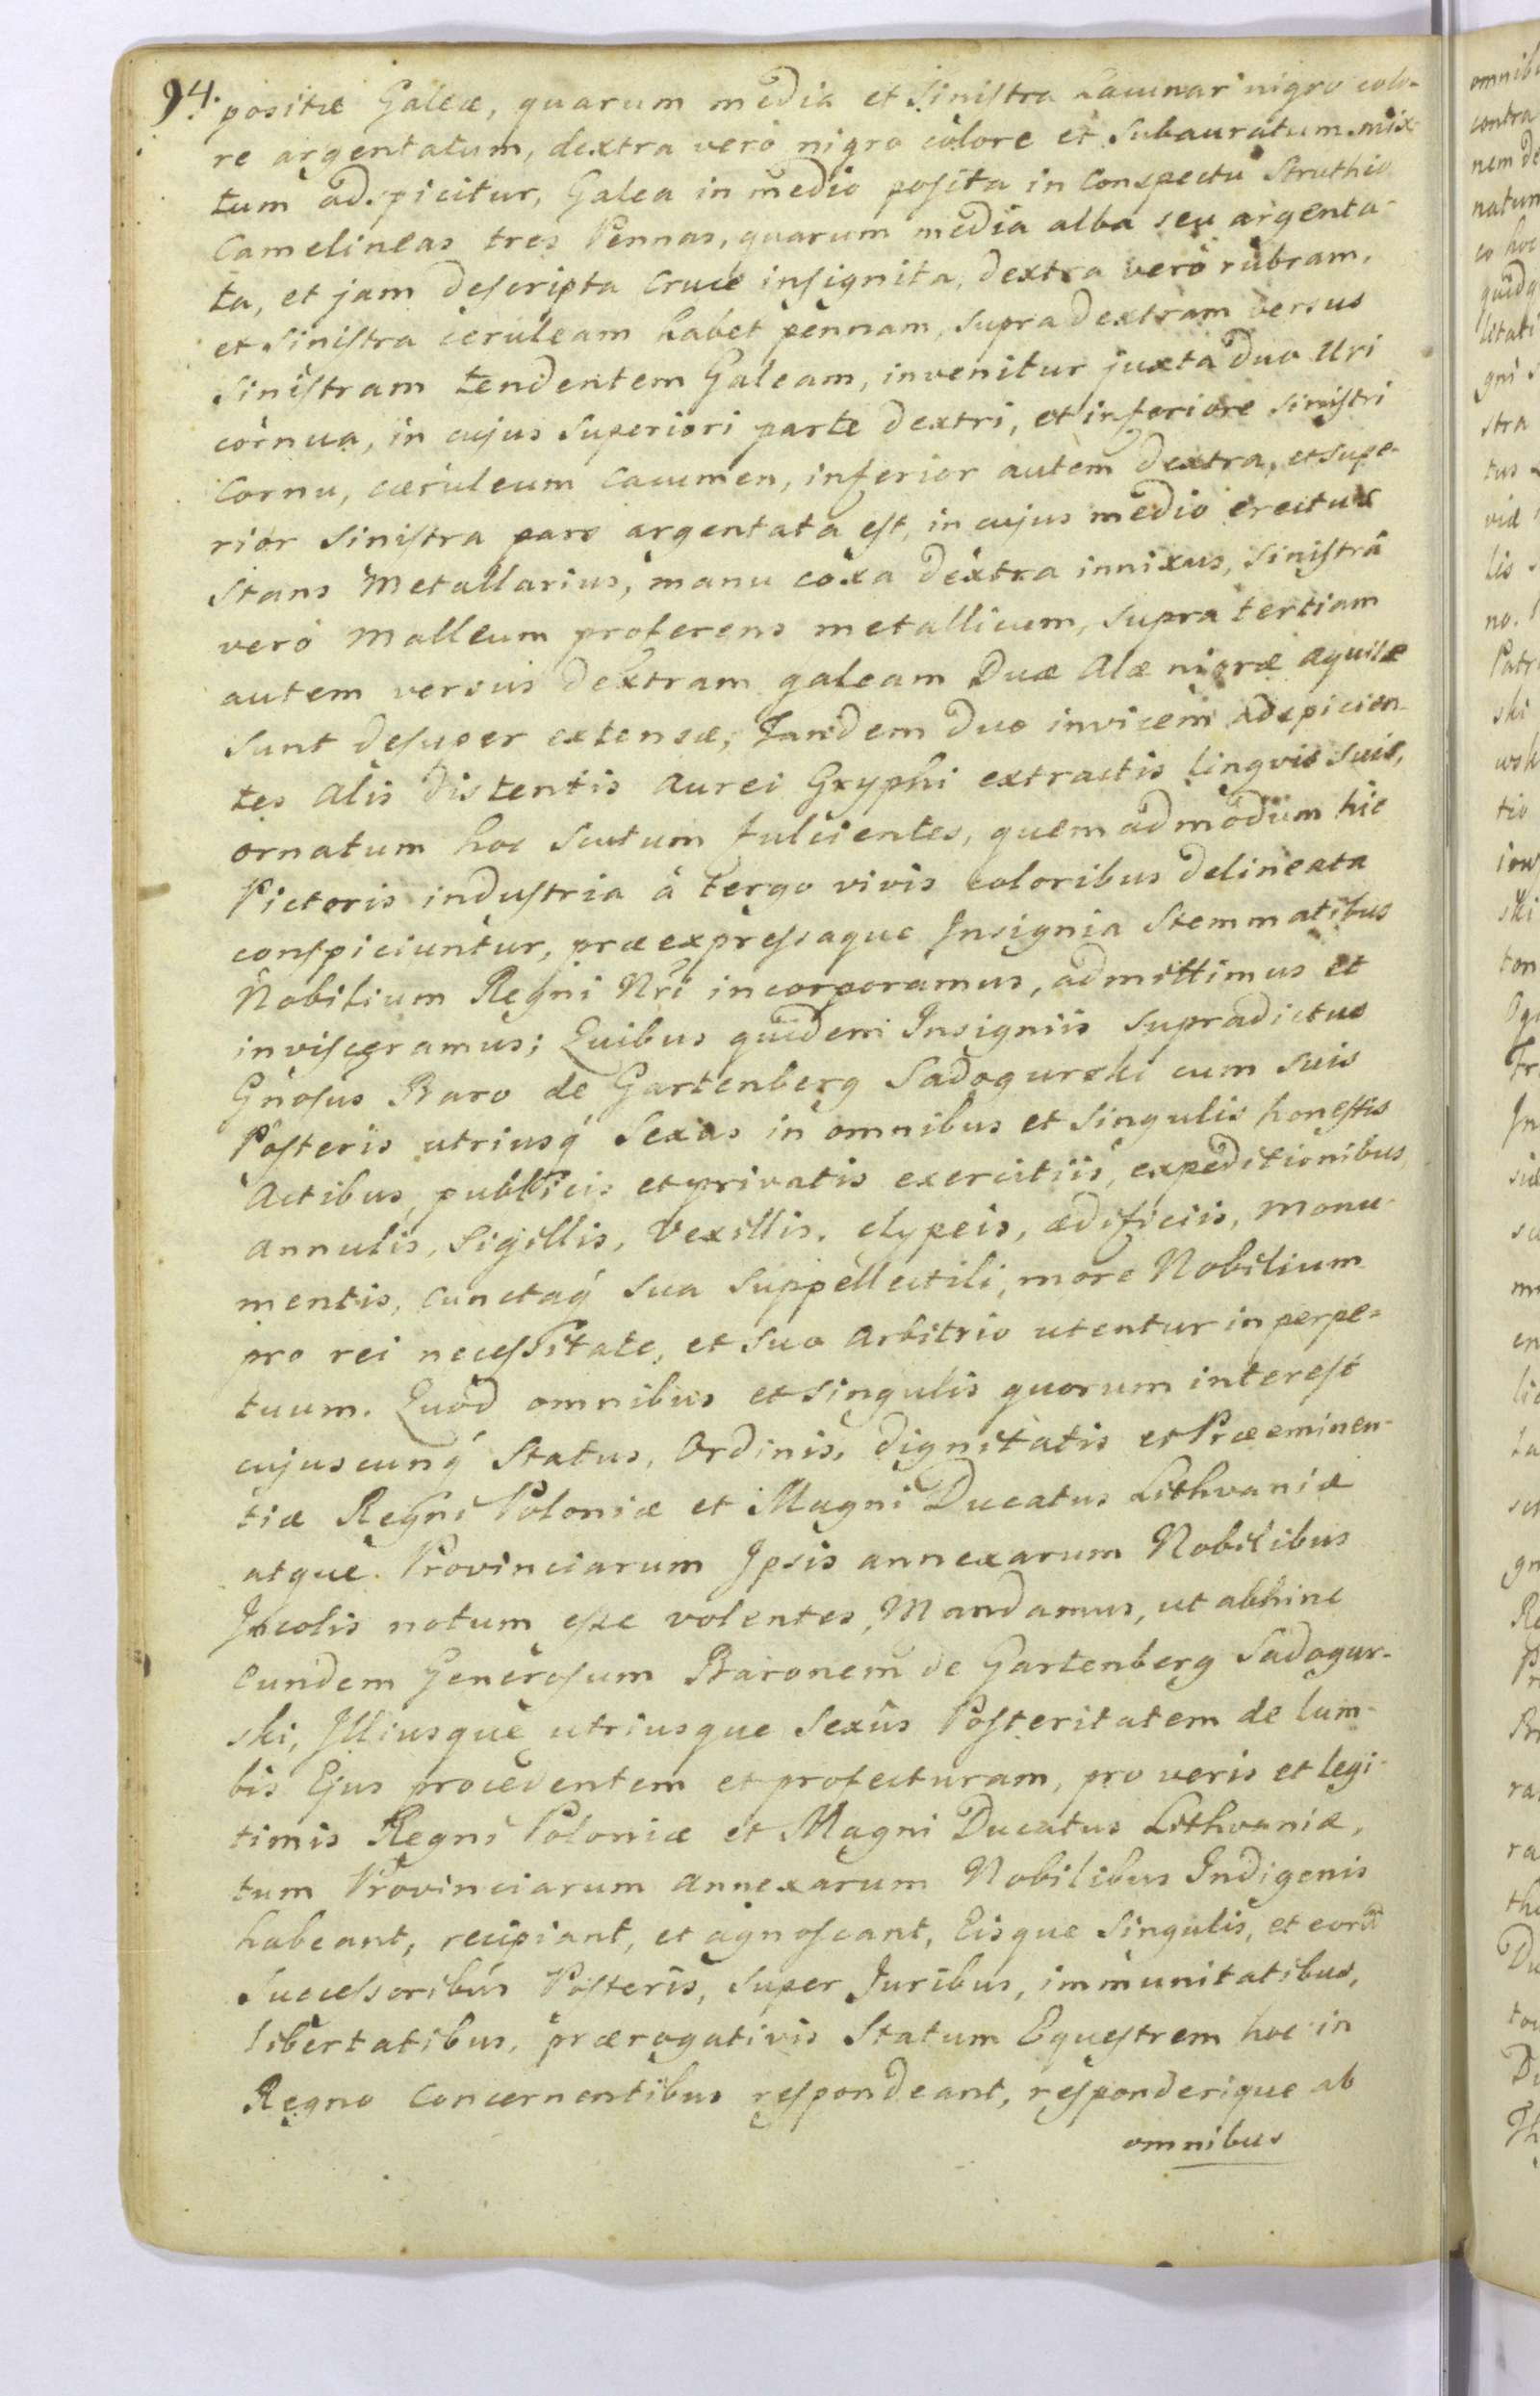 94.
positæ Galeæ, quarum media et Sinistra Lacunar nigro colo-
re argentatum, dextra verò nigro colore et subauratum mix-
tum adspicitur, Galea in medio posita in Conspectu Struthio
Camelineas tres Pennas, quarum media alba seu argenta-
ta, et jam descripta Cruce insignita, dextra verò rubram,
et Sinistra ceruleam habet pennam, supra dextram versus
Sinistram tendentem Galeam, invenitur juxta duo Uri
cornua, in cujus Superiori parte dextri, et inferiore sinistri
Cornu, cæruleum Cacumen, inferior autem dextra, et supe-
rior Sinistra pars argentata est, in cujus medio erectus
Stans Metallarius, manu coxa dextra innixus, Sinistrâ
verò Malleum proferens metallicum, supra tertiam
autem versus dextram galeam Duæ Alæ nigræ Aquilæ
sunt desuper extensæ, Tandem duo invicem adspicien-
tes Alis distentis Aurei Gryphi extractis Lingvis suis,
ornatum hoc Scutum fulcientes, quemadmodum hic
Pictoris industria à tergo vivis coloribus delineata
conspiciuntur, præexpressaque Insignia Stemmatibus
Nobilium Regni Nri incorporamus, admittimus et
invisceramus; Quibus quidem Insigniis Supradictus
Gnosus Baro de Gartenberg Sadogurski cum suis
Posteris utriusq́ Sexus in omnibus et Singulis honestis
Actibus, publicis et privatis exercitiis, expeditionibus,
Annulis, Sigillis, Vexillis, clypeis, ædificiis, Monu-
mentis, cunctaq́ sua Suppellectili, more Nobilium
pro rei necessitate, et suo Arbitrio utentur in perpe-
tuum. Quod omnibus et singulis quorum interest
cujuscunq́ Status, Ordinis, dignitatis et Præeminen-
tiæ Regni Poloniæ et Magni Ducatus Lithvaniæ
atque Provinciarum Ipsis annexarum Nobilibus
Incolis notum esse volentes, Mandamus, ut abhinc
Eundem Generosum Baronem de Gartenberg Sadogur-
ski, Illiusque utriusque Sexûs Posteritatem de lum-
bis Ejus procedentem et profecturam, pro veris et legi-
timis Regni Poloniæ et Magni Ducatus Lithvaniæ,
tum Provinciarum Annexarum Nobilibus Indigenis
habeant, recipiant, et agnoscant, Eisque Singulis, et eorū
Successoribus Posteris, super Juribus, immunitatibus,
libertatibus, prærogativis Statum Equestrem hoc in
Regno Concernentibus respondeant, responderique ab
omnibus